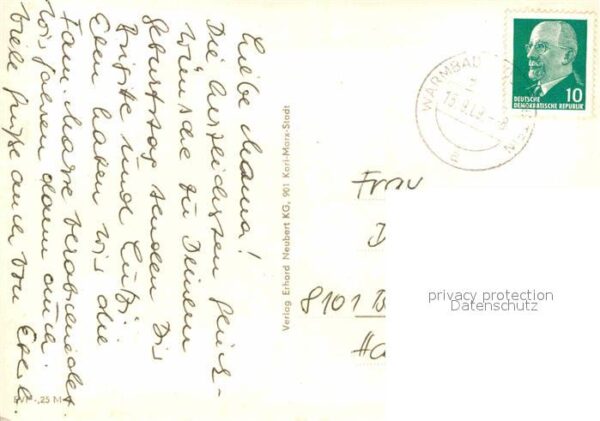 Liebe Mama!
Die herzlichsten Glück-
wünsche zu Deinem
Geburtstag senden Dir
Brigitte und Lutz.
Eben haben wir die
Fam. verabschiedet
wir fahren dann auch.
Viele Grüße auch von
EVP -,25 M
Verlag Erhard Neubert KG, 901 Karl-Marx-Stadt
WARMBAD
DEUTSCHE
DEMOKRATISCHE REPUBLIK
10
Frau
D
8101 B
Ha
privacy protection
Datenschutz